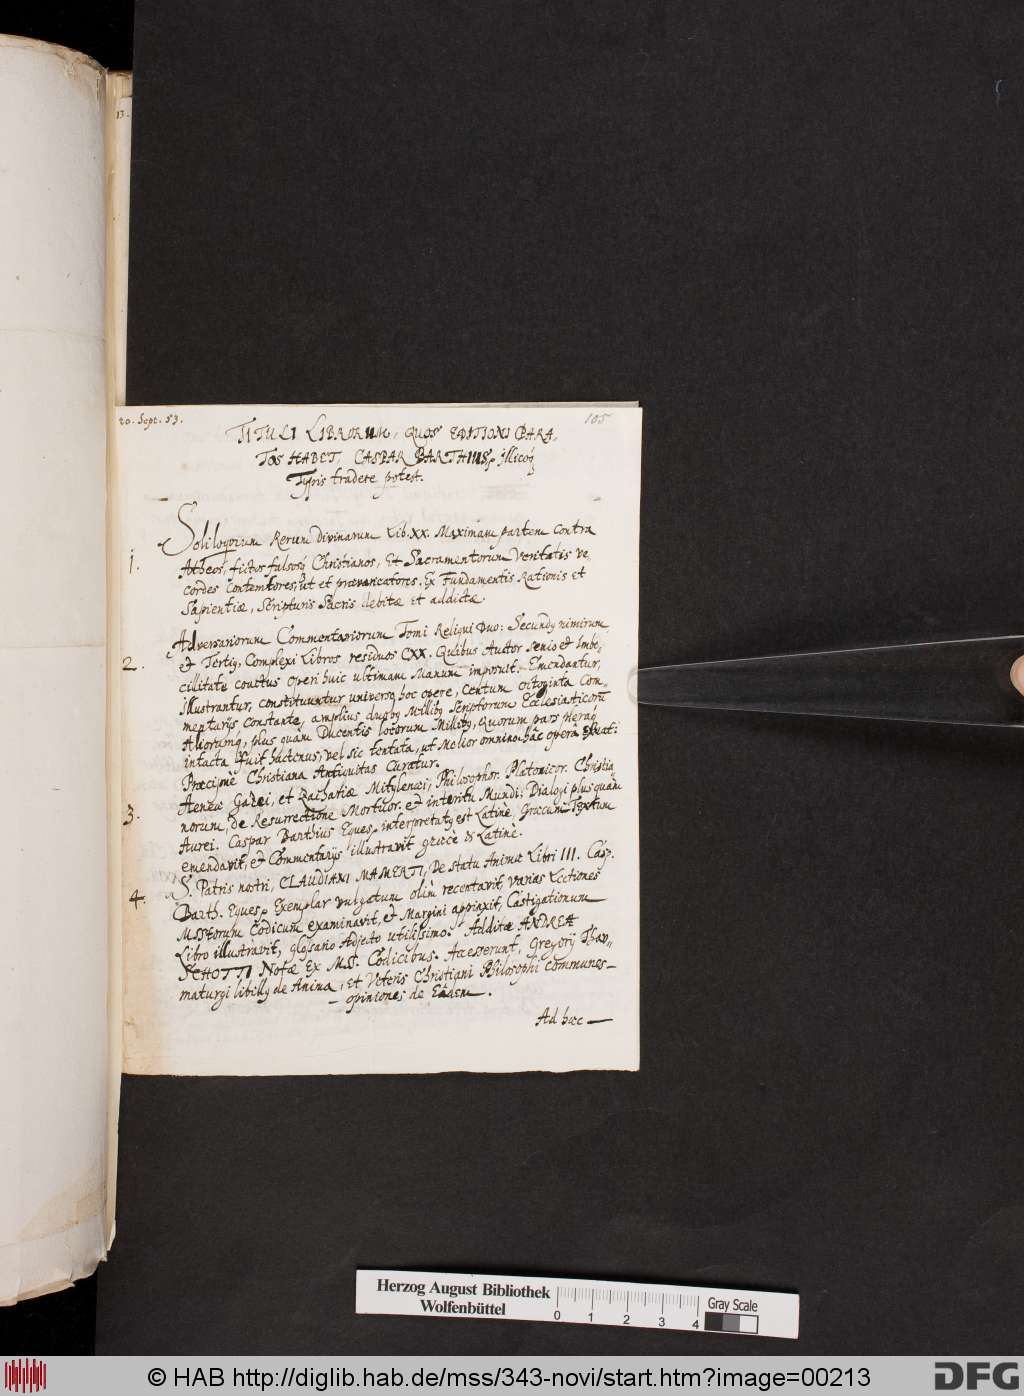 13.
20. Sept. 53.
105
TITULI LIBRORUM, QUOS EDITIONI PARA,
TOS HABET, CASPAR BARTHIUS, illicoq
Typis tradere potest.
1.
Soliloquium Rerum Divinarum Lib. XX. Maximam partem contra
Atheos, fictos falsosq Christianos, Et Sacramentorum Veritatis ve,
cordes Contemtores, ut et praevaricatores. Ex Fundamentis Rationis et
Sapientiae, Scripturis Sacris debitae et addictae.
2.
Adversariorum Commentariorum Tomi Reliqui Duo: Secundg nimirum
et Tertig, Complexi Libros residuos CXX. Quibus Auctor senio et Imbe,
cillitate coactus operi huic ultimam Manum imposuit. Emendantur,
illustrantur, constituuntur universo hoc opere, Centum octoginta Com,,
mentarijs constante, amplius duobg Millibg Scriptorum Ecclesiasticorū
Aliorumq, plus quàm Ducentis locorum Millibg, Quorum pars pleraq
intacta fuit hactenus, vel sic tentata, ut Molior omnino hâc operâ extat:
Praecipuè Christiana Antiquitas Curatur.
3.
Aeneae Gazei, et Zachariae Mitylenaei, Philosophor. Platonicor. Christia,
norum, de Resurrectione Mortuor. et interitu Mundi; Dialogi plus quàm
Aurei. Caspar Barthius Eques, interpretatg est Latinè, Graecum Textum
emendavit, et Commentarijs illustravit graecè & Latinè.
4.
S. Patris nostri, CLAUDIANI MAMERTI, De Statu Animae Libri III. Casp.
Barth. Eques, Exemplar vulgatum olim recentavit, varias Lectiones
Msstorum Codicum examinavit, et Margini appinxit, Castigationum
Libro illustravit, glossario Adjecto utilissimo. Additae ANDREAE
SCHOTTI Notae Ex Mss. Codicibus. Accesserunt, Gregorij Thav,,
maturgi libellg de Anima, et Veteris Christiani Philosophi communes
opiniones de Eâdem.
Ad haec
Herzog August Bibliothek
Wolfenbüttel
0 1 2 3 4
Gray Scale
© HAB http://diglib.hab.de/mss/343-novi/start.htm?image=00213
DFG